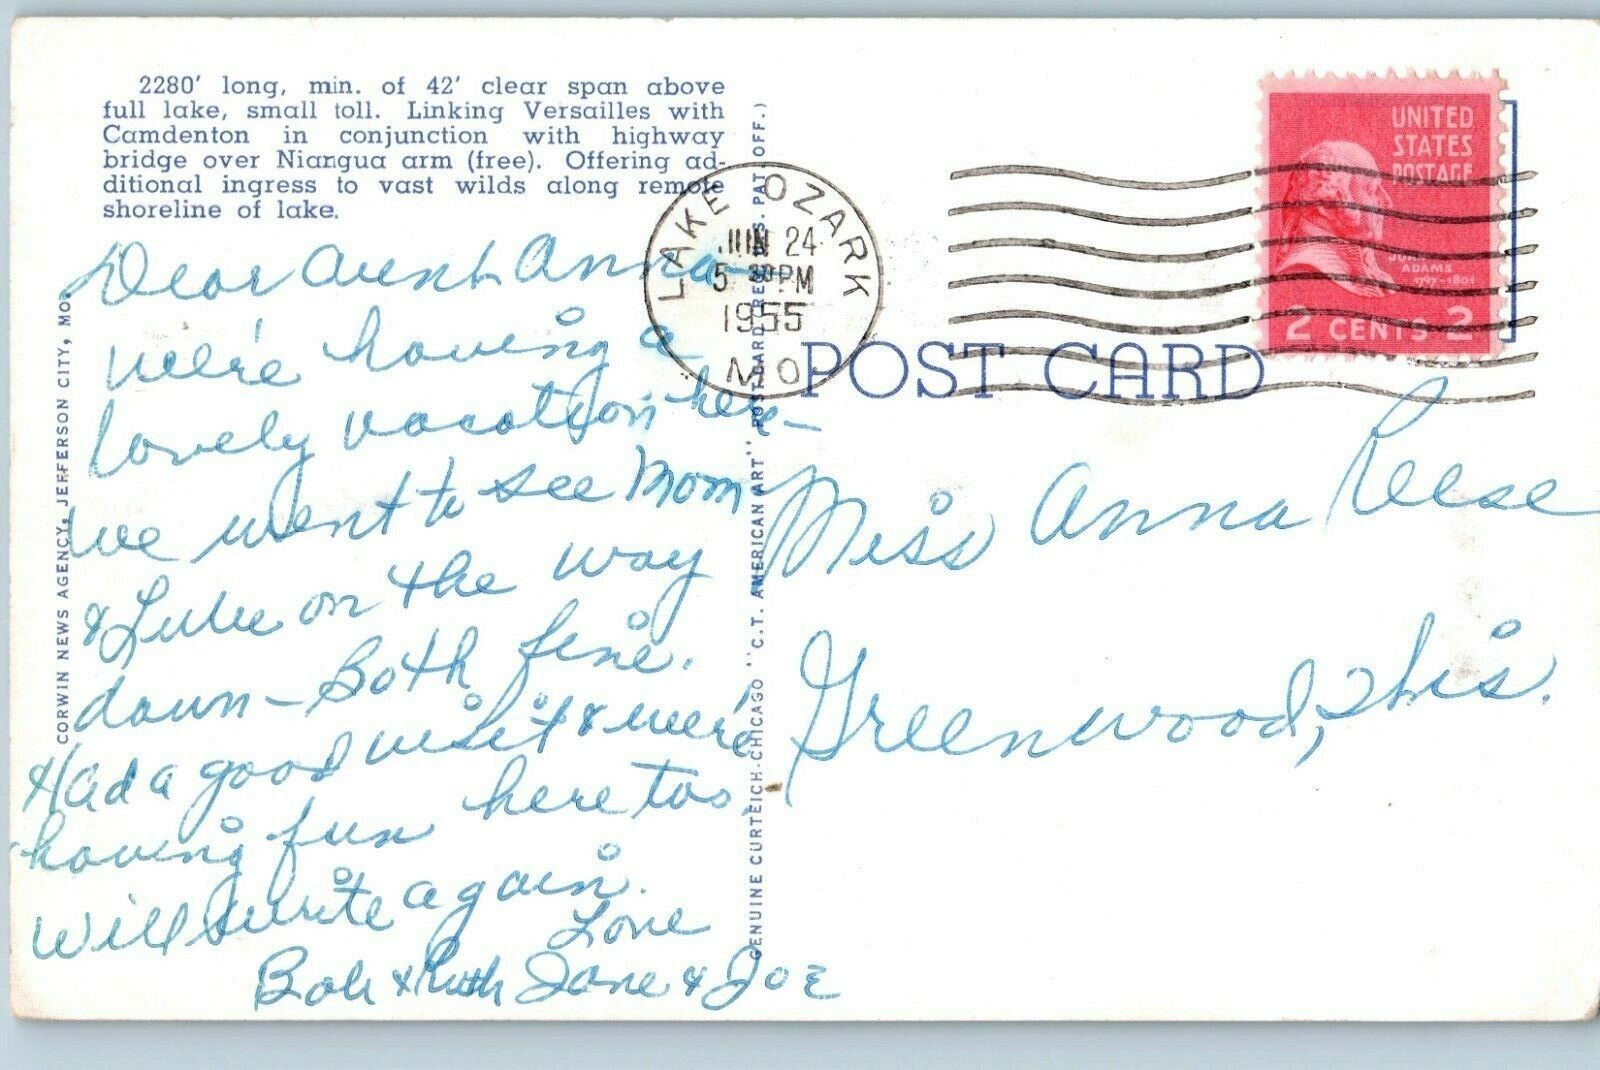 2280' long, min. of 42' clear span above
full lake, small toll. Linking Versailles with
Camdenton in conjunction with highway
bridge over Niangua arm (free). Offering ad-
ditional ingress to vast wilds along remote
shoreline of lake.
Dear Aunt Anna—
We're having a
lovely vacation here—
We went to see Mom
& Lulu on the way
down — Both fine.
& Had a good visit & we're
having fun here too.
Will write again.
Love
Bob & Ruth Jane & Joe
CORWIN NEWS AGENCY, JEFFERSON CITY, MO.
GENUINE CURTEICH-CHICAGO "C.T. AMERICAN ART" POST CARD (REG. U.S. PAT. OFF.)
LAKE OZARK
JUN 24
5 30 PM
1955
MO
UNITED
STATES
POSTAGE
JOHN
ADAMS
1797-1801
2 CENTS 2
POST CARD
Miss Anna Reese
Greenwood, Wis.